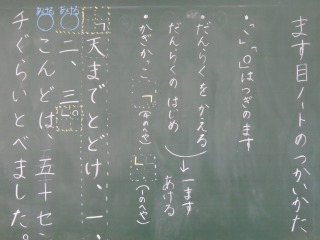 ます目ノートのつかいかた
・「、」「。」はつぎのます
・だんらくを かえる
だんらくの はじめ
→一ます
あける
・かぎかっこ 「 (四のへや) 」 (一のへや)
あける
「天までとどけ、一、
二、三。」
あける
こんどは、五十セン
チぐらいとべました。